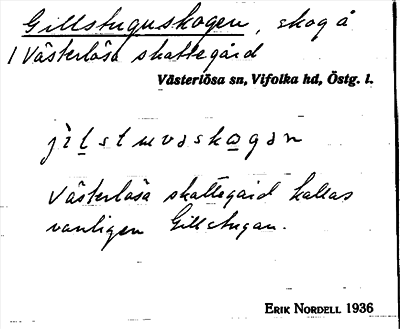 Gillstuguskogen, skog å
1 Västerlösa skattegård
Västerlösa sn, Vifolka hd, Östg. l.
jilstuvəskogən
Västerlösa skattegård kallas
vanligen Gillstugan.
ERIK NORDELL 1936